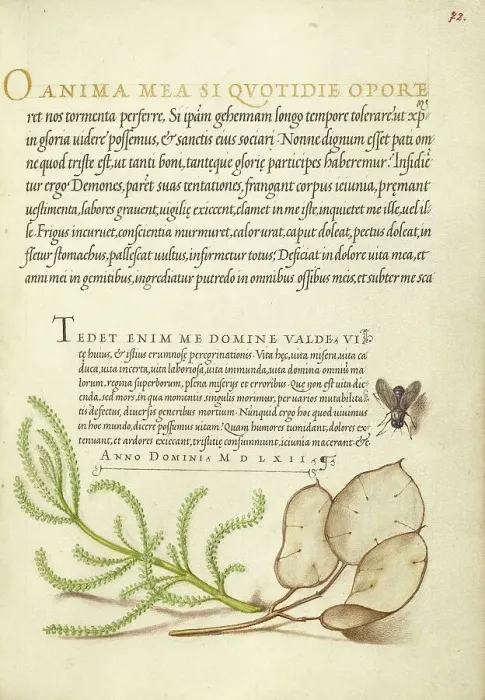 72.
O ANIMA MEA SI QVOTIDIE OPORE
ret nos tormenta perferre, Si ipãm gehennam longo tempore tolerare, ut xp̃m
in gloria uidere possemus, & sanctis eius sociari: Nonne dignum esset pati om=
ne quod triste est, ut tanti boni, tantęque glorię participes haberemur? Insidiẽ
tur ergo Demones, parẽt suas tentationes, frangant corpus ieiunia, pręmant
uestimenta, labores grauent, uigilię exiccent, clamet in me iste, inquietet me ille, uel il=
le. Frigus incuruet, conscientia murmuret, calor urat, caput doleat, pectus doleat, in
fletur stomachus, pallescat uultus, infirmetur totus; Deficiat in dolore uita mea, et
anni mei in gemitibus, ingrediatur putredo in omnibus ossibus meis, et subter me sca
TEDET ENIM ME DOMINE VALDE, VI
tę huius, & istius erumnosę peregrinationis. Vita hęc, uita misera, uita ca
duca, uita incerta, uita laboriosa, uita immunda, uita domina omniũ ma
lorum, regina superborum, plena miserijs et erroribus. Quę non est uita dic=
enda, sed mors, in qua momentis singulis morimur, per uarios mutabilita=
tis defectus, diuersis generibus mortium. Nunquid ergo hoc quod uiuimus
in hoc mundo, dicere possumus uitam? Quam humores tumidant, dolores ex=
tenuant, et ardores exiccant, tristitię consummunt, ieiunia macerant &c̃
ANNO DOMINI M D LXII